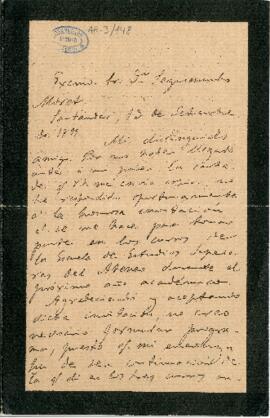 AR-3/148
Excmo. Sr. Dn. Segismundo
Moret
Santander, 13 de Setiembre
de 1899
Mi distinguido
amigo: Por no haber llegado
antes a mi poder la carta
de q. Vd. me envía copia, no
he respondido oportunamente
a la honrosa invitación
q. se me hace para tomar
parte en los cursos de
la Escuela de Estudios Superio
res del Ateneo durante el
próximo año académico.
Agradeciendo y aceptando
dicha invitación, no creo
necesario formular progra
ma, puesto q. mi enseñanza
ha de ser continuación de
la q. di en los tres cursos an